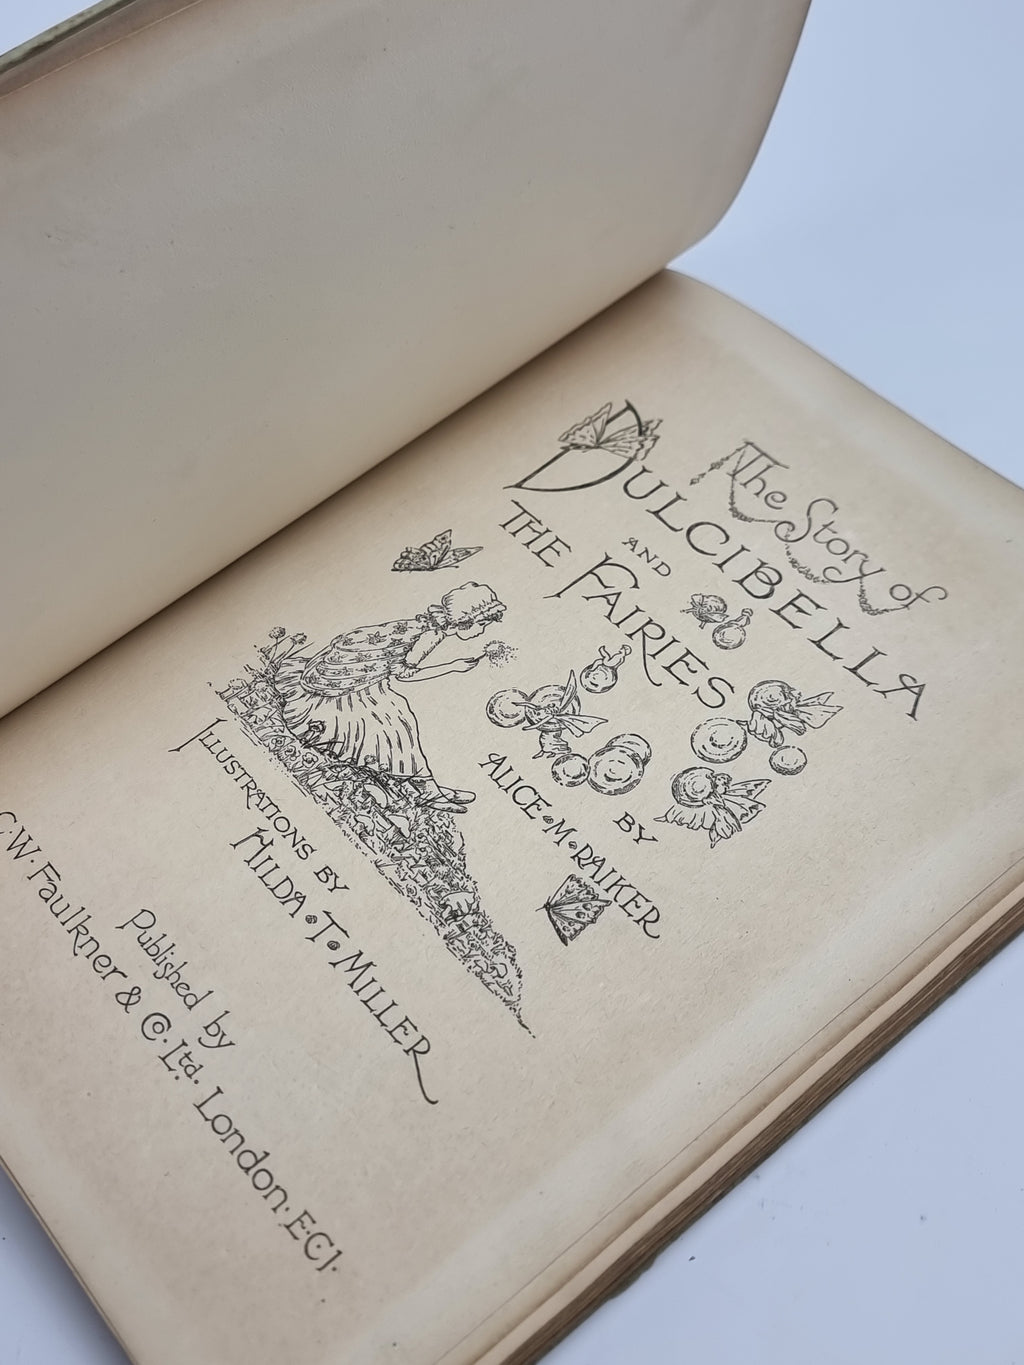 The Story of
DULCIBELLA
AND
THE FAIRIES
BY
ALICE·M·RAIKER
ILLUSTRATIONS BY
HILDA·T·MILLER
Published by
C·W·Faulkner & Co. Ltd. London·E·C·1·